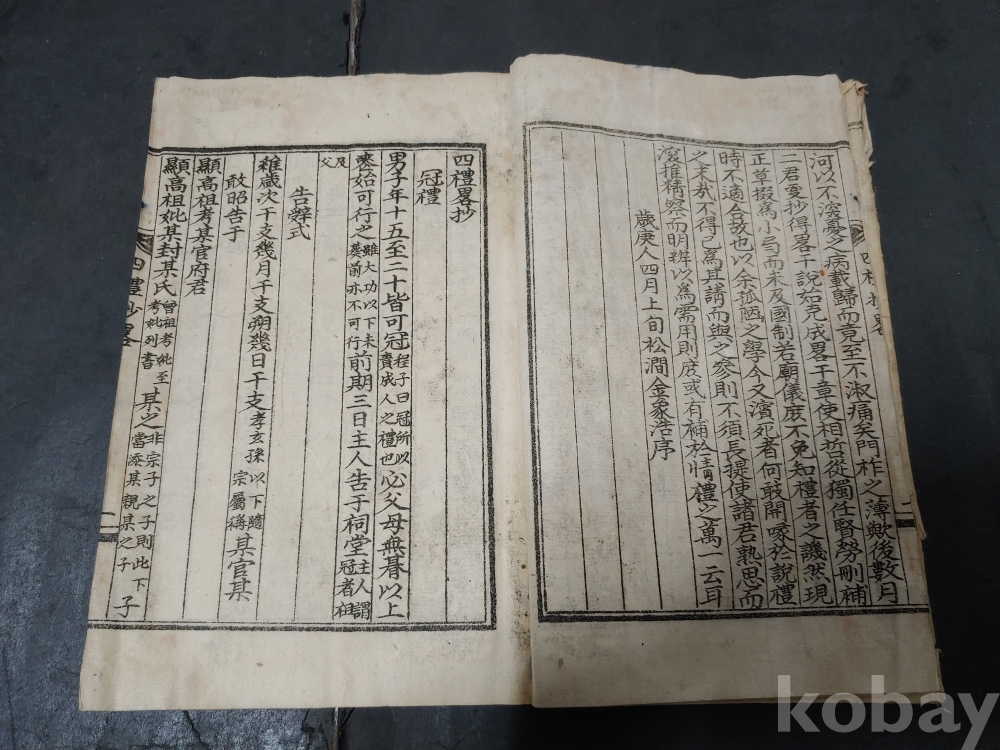 河以不淑憂之病載歸而竟至不淑痛矣門祚之薄歟後數月
二君更抄得畧干說如克成畧干章使相哲從獨任賢學刪補
正草掇爲小弓而未及國制若廟儀度不免知禮者之譏然現
時不適合故也以余孤陋之學今又濱死者何敢開喙於說禮
之末哉不得已爲其請而與之參則不須長提使諸君熟思而
深推精察而明辨以爲需用則庶或有補於情禮之萬一云耳
歲庚人四月上旬松澗金象浩序
四禮抄畧
四禮畧抄
冠禮
男子年十五至二十皆可冠程子曰冠所以責成人之禮也必父母無朞以上
喪始可行之雖大功以下未葬前亦不可行前期三日主人告于祠堂主人謂冠者祖
及父
告辤式
維歲次干支幾月干支朔幾日干支孝玄孫以下隨宗屬稱某官某
敢昭告于
顯高祖考某官府君
顯高祖妣某封某氏曾祖考妣至考妣列書某之非宗子之子則此下當添某親某之子子
四禮抄畧
kobay